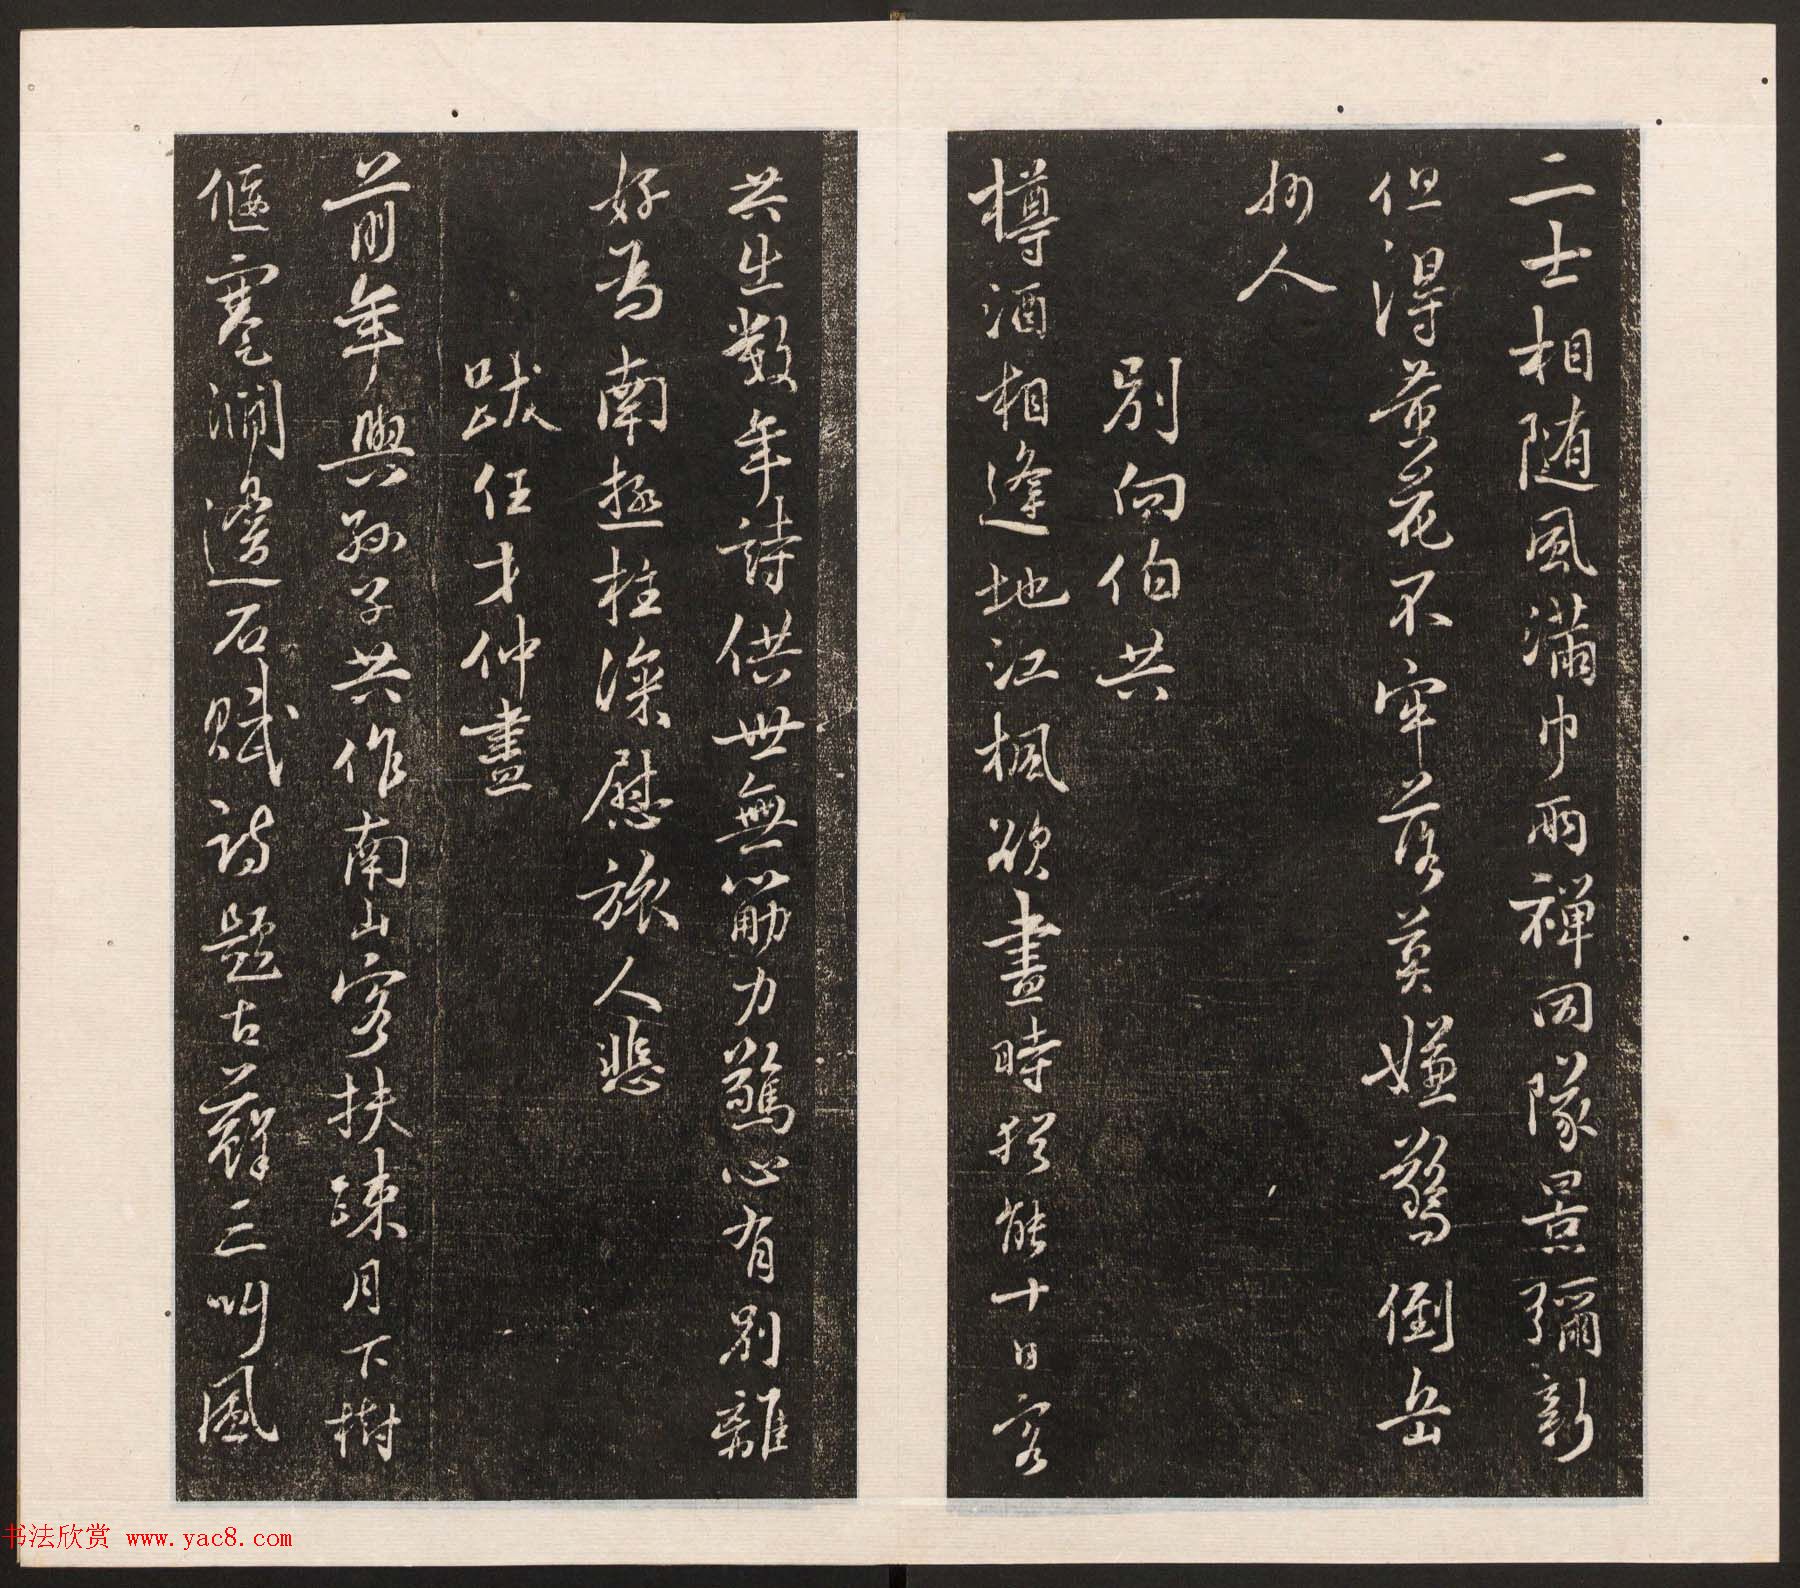 二士相随風滿巾雨禅同隊景彌新
但得黃花不牢落莫嫌驚倒岳
州人
別向伯共
樽酒相逢地江楓欲盡時猶能十日客
共出數年詩供世無筋力驚心有別離
好為南極柱深慰旅人悲
跋任才仲畫
前年與孫子共作南山客扶疎月下樹
偃蹇澗邊石賦詩題古蘚三叫風
书法欣赏 www.yac8.com